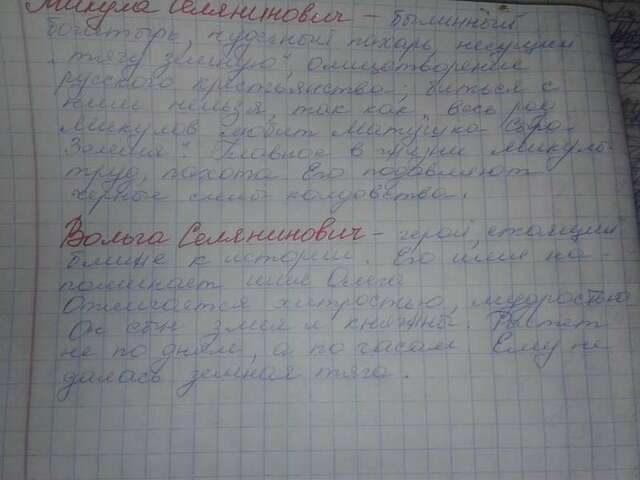 Микула Селянинович – былинный
богатырь, чудесный пахарь, несущий
"тягу земную", олицетворение
русского крестьянства; биться с
ним нельзя, так как весь род
Микулов любит Матушка Сыра-
Земля". Главное в жизни Микулы
труд, пахота. Его подавляют
черные силы колдовства.
Вольга Селянинович – герой, стоящий
ближе к истории. Его имя на-
поминает имя Олега.
Отличается хитростью, мудростью
Он сын змея и княжны. Растет
не по дням, а по часам. Ему не
далась земная тяга.